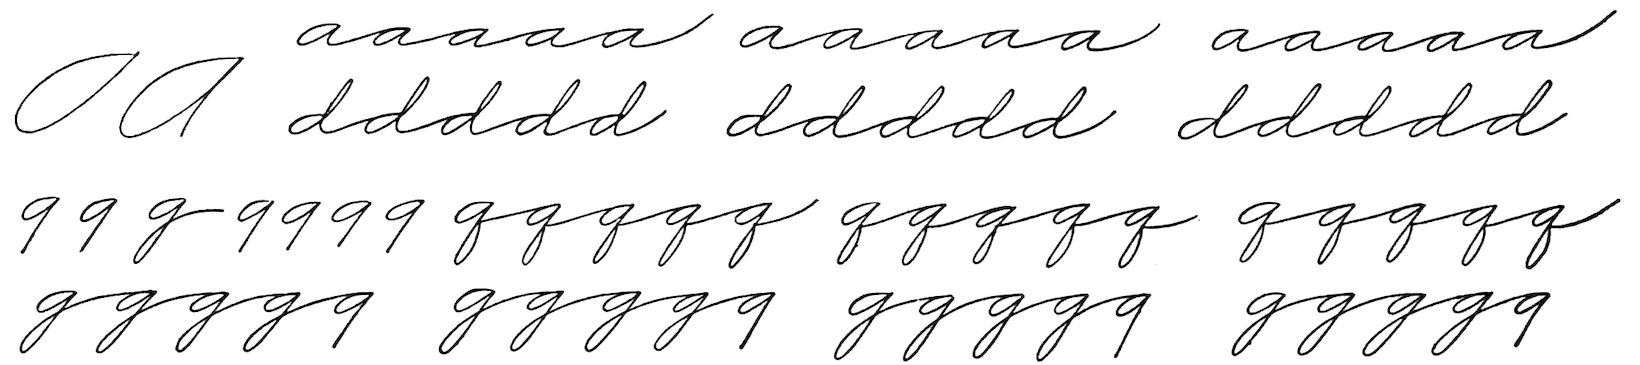 a aaaaa aaaaa aaaaa
ddddd ddddd ddddd
9 9 g 9 9 9 9 qqqqq qqqqq qqqqq
gggg9 gggg9 gggg9 gggg9